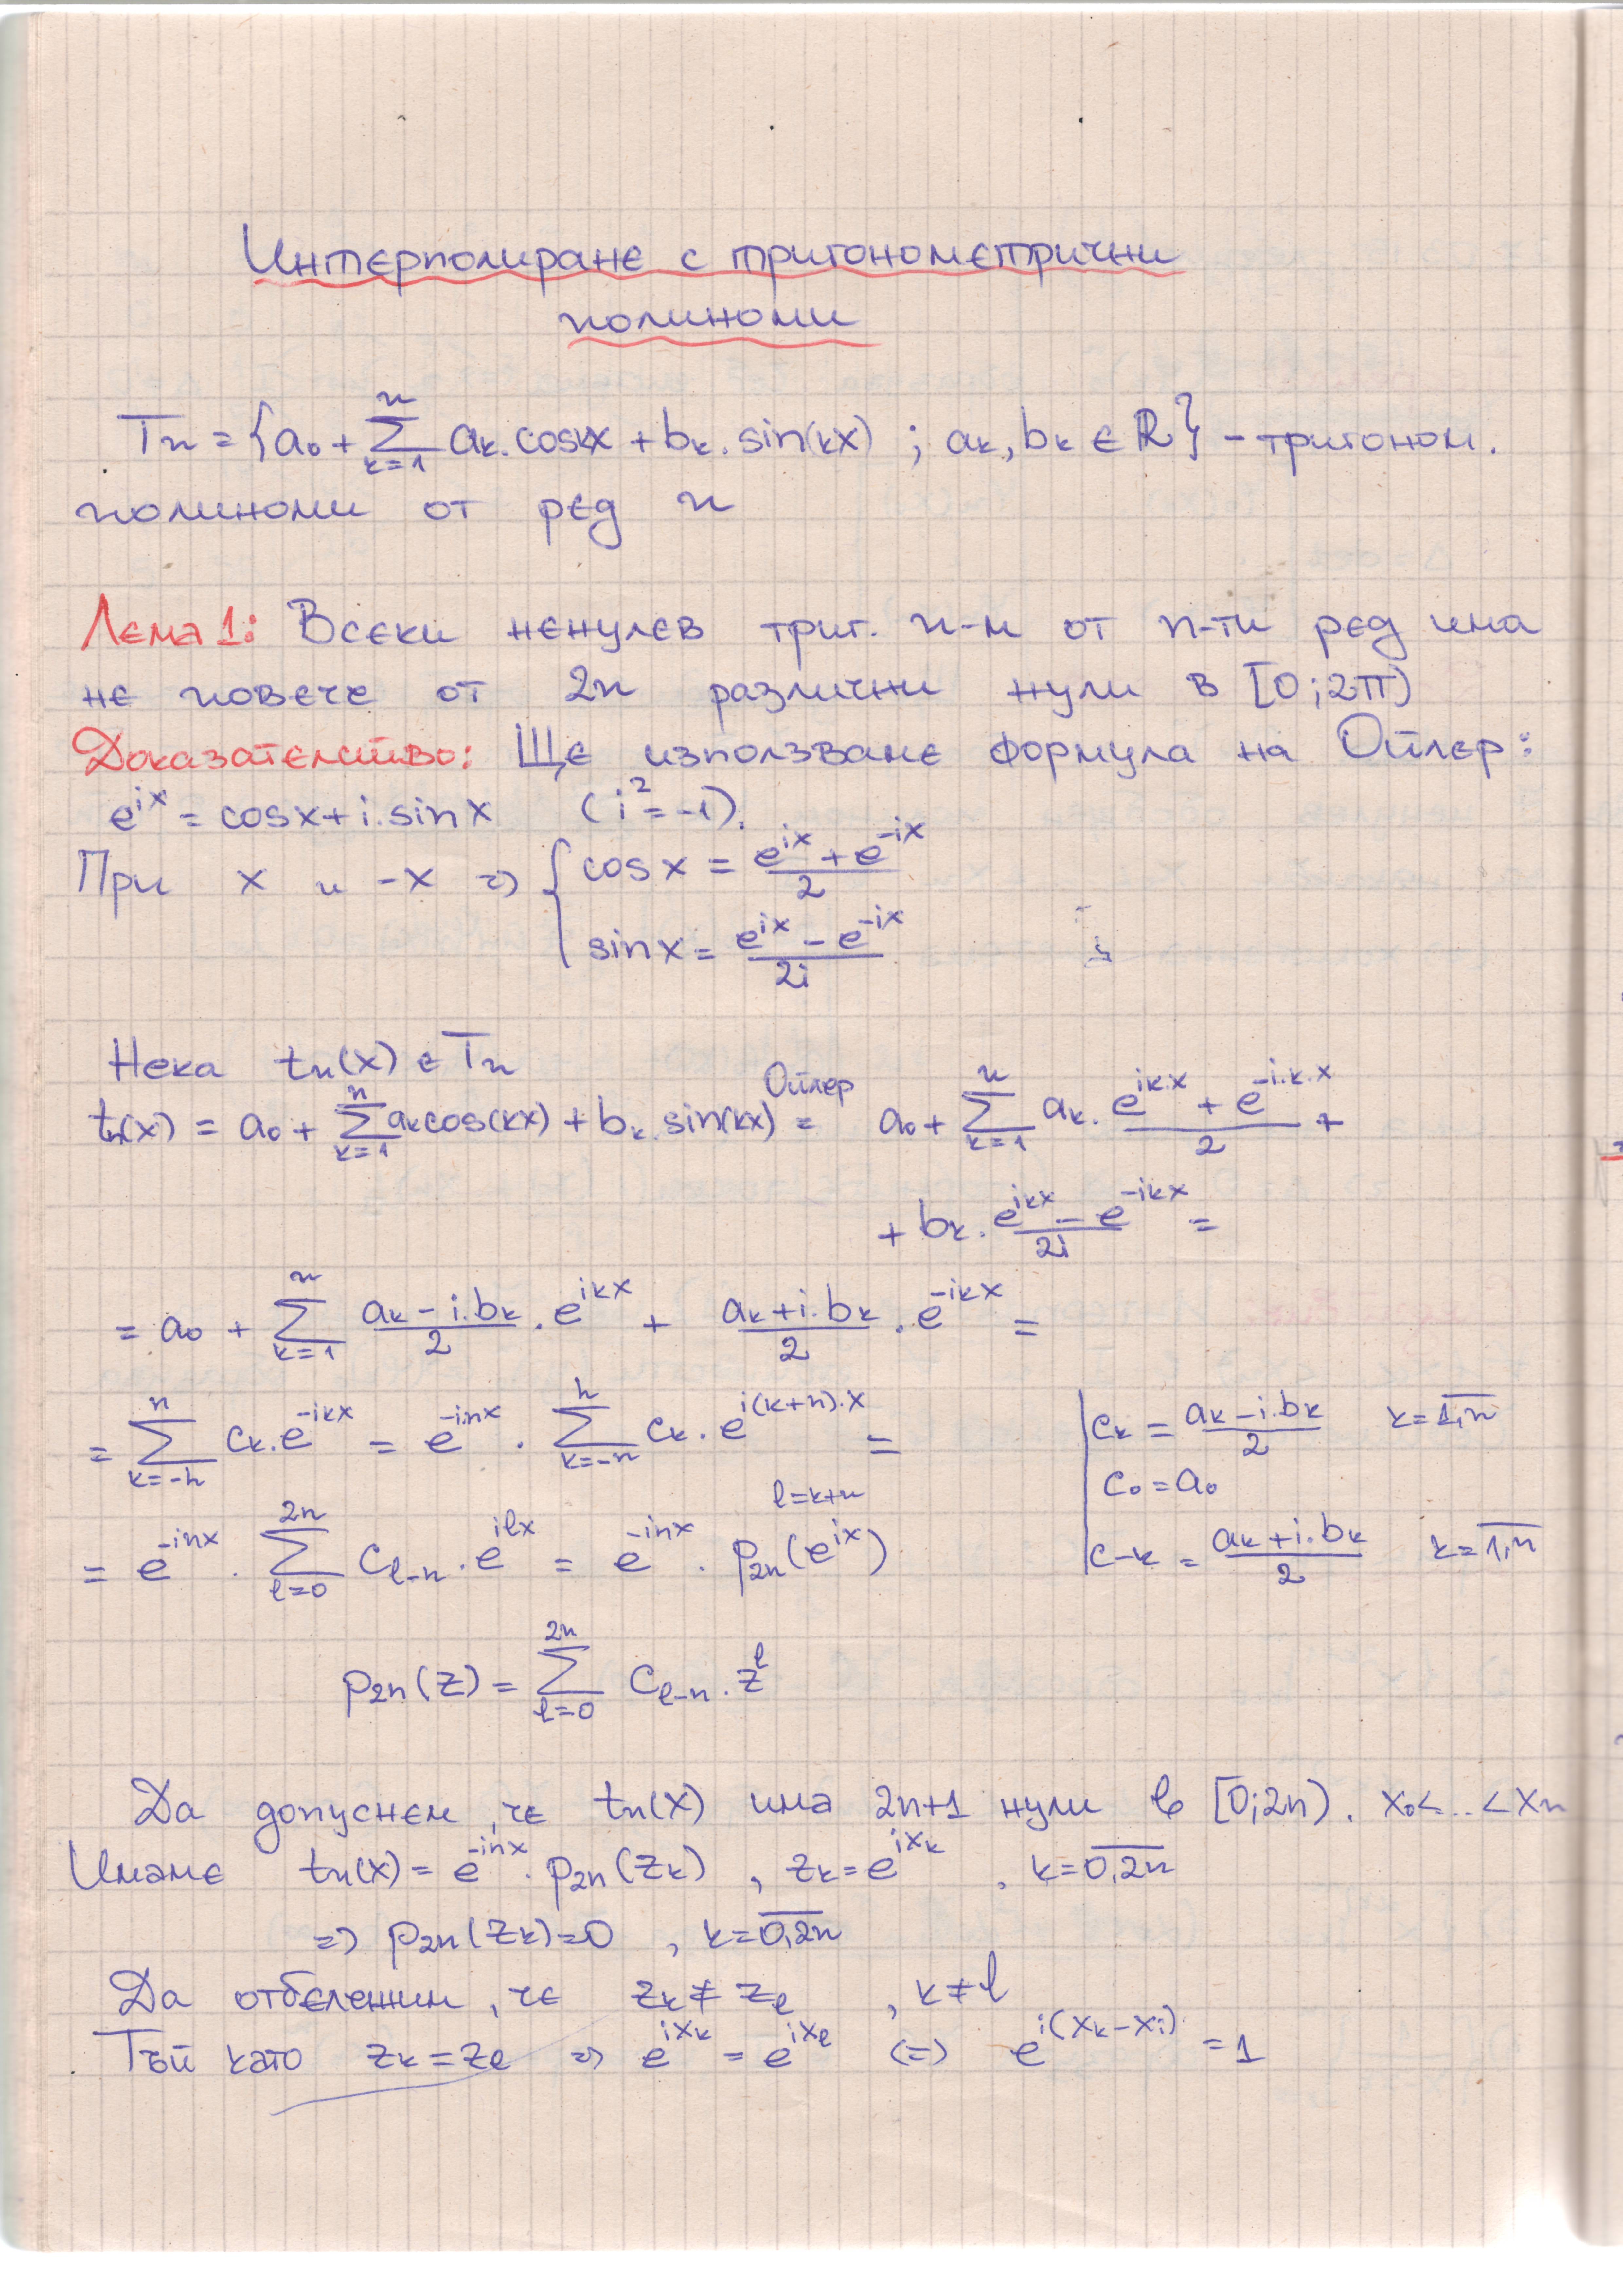 Интерполиране с тригонометрични
полиноми
Tn = {a₀ + ∑_{k=1}^{n} aₖ.coskx + bₖ.sin(kx) ; aₖ, bₖ ∈ ℝ} - тригоном.
полиноми от ред n
Лема 1: Всеки ненулев триг. п-м от n-ти ред има
не повече от 2n различни нули в [0;2π)
Доказателство: Ще използваме формула на Ойлер:
e^{ix} = cosx + i.sinx (i² = -1).
При x и -x => { cosx = (e^{ix} + e^{-ix})/2
sinx = (e^{ix} - e^{-ix})/2i
Нека tn(x) ∈ Tn
tn(x) = a₀ + ∑_{k=1}^{n} aₖcos(kx) + bₖ.sin(kx) =^{Ойлер} a₀ + ∑_{k=1}^{n} aₖ.(e^{ik.x} + e^{-i.k.x})/2 +
+ bₖ.(e^{ikx} - e^{-ikx})/2i =
= a₀ + ∑_{k=1}^{n} (aₖ - i.bₖ)/2 . e^{ikx} + (aₖ + i.bₖ)/2 . e^{-ikx} =
= ∑_{k=-n}^{n} cₖ.e^{-ikx} = e^{-inx} . ∑_{k=-n}^{n} cₖ.e^{i(k+n).x} = | cₖ = (aₖ - i.bₖ)/2 k = \overline{1,n}
l=k+n | c₀ = a₀
= e^{-inx} . ∑_{l=0}^{2n} c_{l-n}.e^{ilx} = e^{-inx} . p₂ₙ(e^{ix}) | c₋ₖ = (aₖ + i.bₖ)/2 k = \overline{1,n}
p₂ₙ(z) = ∑_{l=0}^{2n} c_{l-n}.z^{l}
Да допуснем, че tn(x) има 2n+1 нули в [0;2n). x₀<..<xₙ
Имаме tn(x) = e^{-inx} . p₂ₙ(zₖ) , zₖ = e^{ixₖ} , k = \overline{0,2n}
=> p₂ₙ(zₖ) = 0 , k = \overline{0,2n}
Да отбележим, че zₖ ≠ z_l , k ≠ l
Тъй като zₖ = z_l => e^{ixₖ} = e^{ix_l} (=) e^{i(xₖ - xᵢ)} = 1